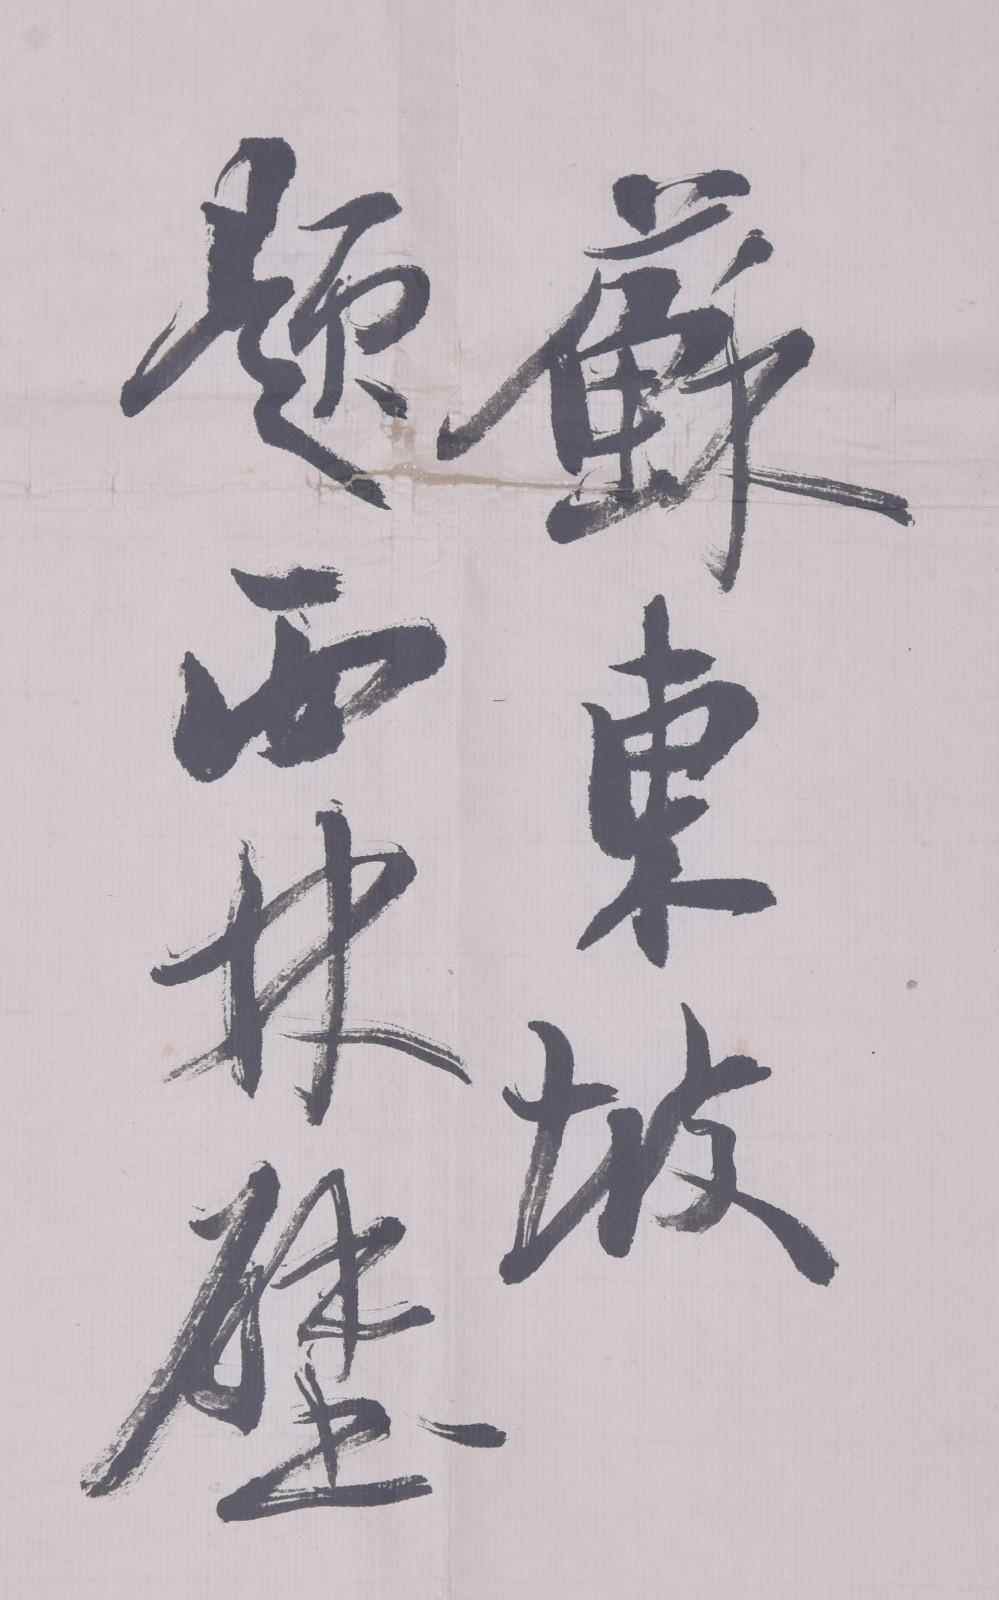 蘇東坡
題西林壁